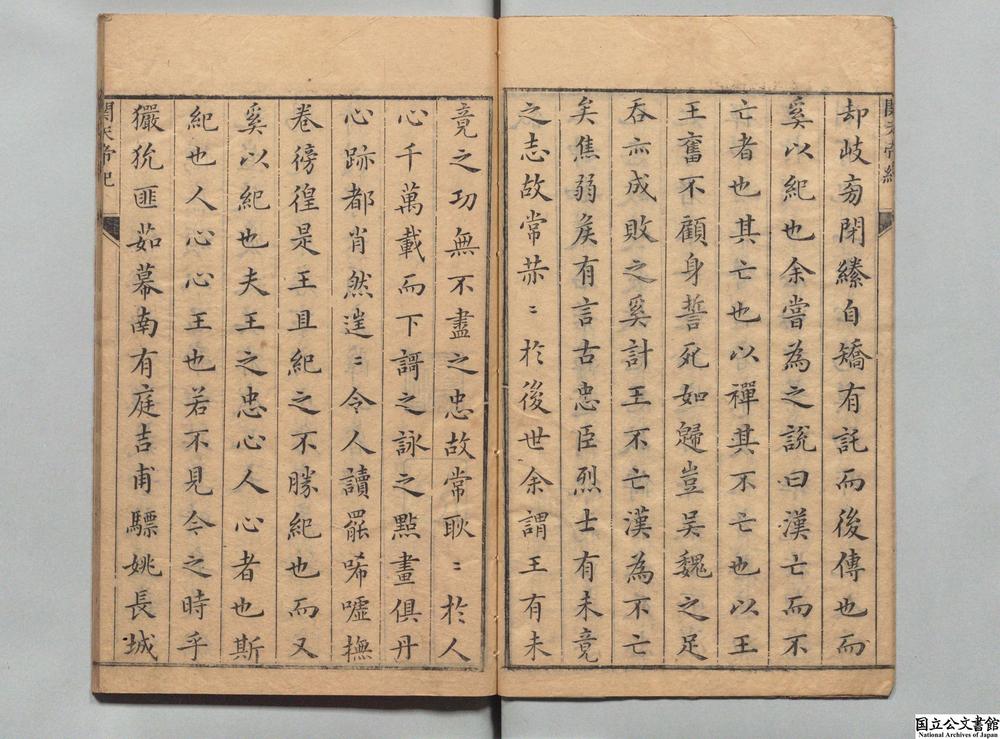 却岐㫄閉纂自矯有託而後傳也而
奚以紀也余嘗為之說曰漢亡而不
亡者也其亡也以禪其不亡也以王
王奮不顧身誓死如歸豈吳魏之足
吞亦成敗之奚計王不亡漢為不亡
矣焦弱矦有言古忠臣烈士有未竟
之志故常恭〻於後世余謂王有未
竟之功無不盡之忠故常耿〻於人
心千萬載而下謌之詠之點畫俱丹
心跡都肖然逞〻令人讀罷唏噓撫
卷徬徨是王且紀之不勝紀也而又
奚以紀也夫王之忠心人心者也斯
紀也人心心王也若不見今之時乎
玁狁匪茹幕南有庭吉甫驃姚長城
關天帝紀
關天帝紀
国立公文書館
National Archives of Japan